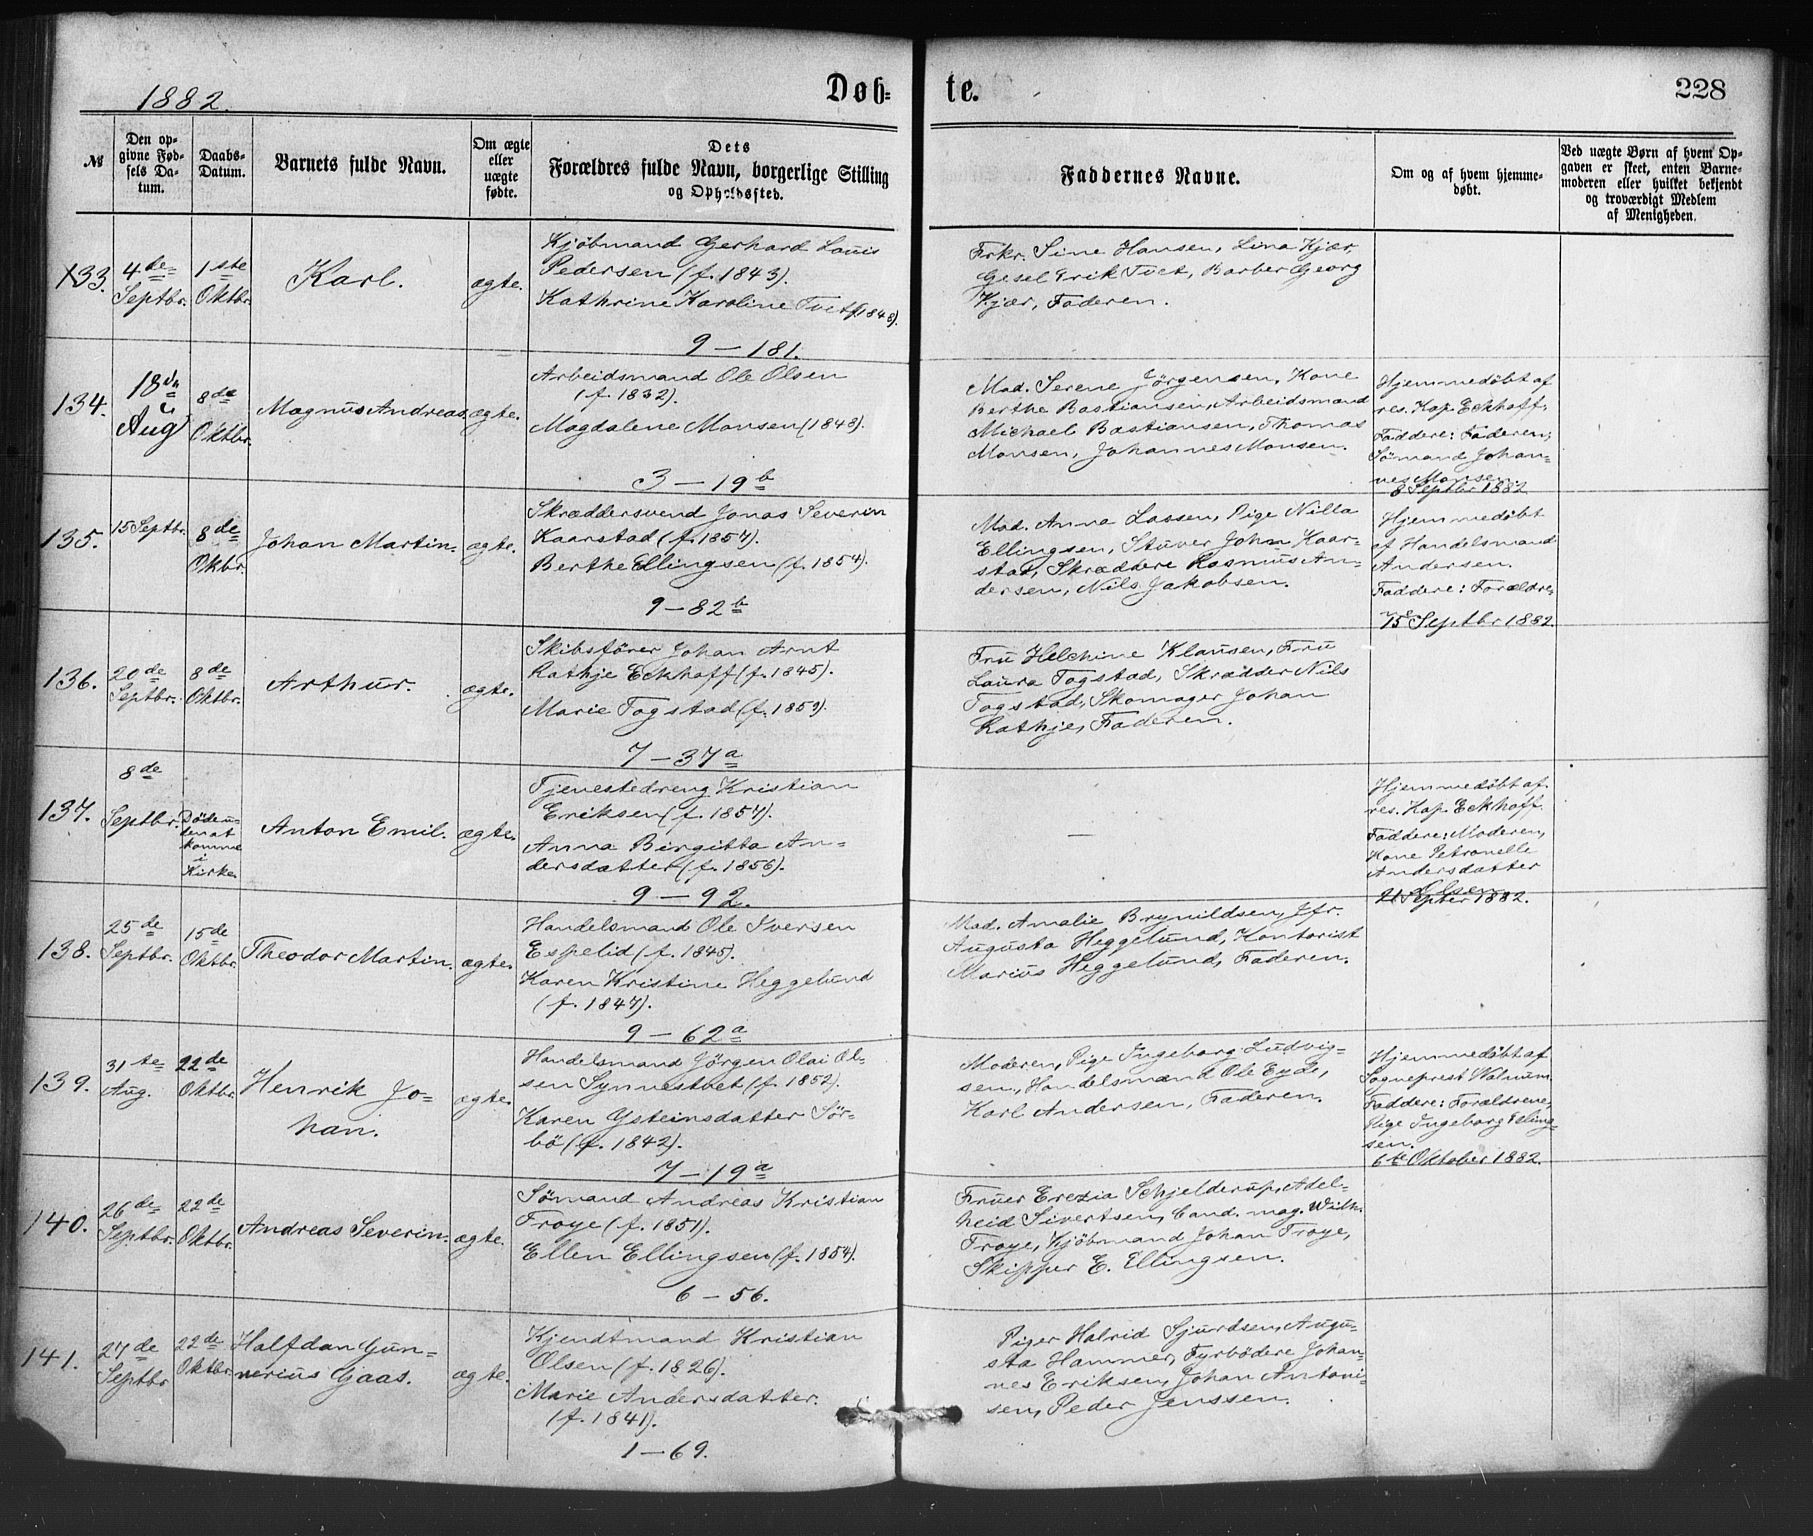 1882.
Døb-
te.
228
№
Den op-
givne Fød-
sels Da-
tum.
Daabs-
Datum.
Barnets fulde Navn.
Om ægte
eller
uægte
fødte.
Dets
Forældres fulde Navn, borgerlige Stilling
og Opholdssted.
Faddernes Navne.
Om og af hvem hjemme-
døbt.
Ved uægte Børn af hvem Op-
gaven er skeet, enten Barne-
moderen eller hvilket bekjendt
og troværdigt Medlem
af Menigheden.
133.
4de
Septbr.
1ste
Oktbr.
Karl.
ægte.
Kjøbmand Gerhard Louis
Pedersen (f. 1843).
Kathrine Karoline Tvet (f. 1848).
9 — 181.
Frkr. Sine Hansen, Lina Kjær,
Gesel Erik Tvet, Barber Georg
Kjær, Faderen.
134.
18de
Aug
8de
Oktbr.
Magnus Andreas.
ægte.
Arbeidsmand Ole Olsen
(f. 1832).
Magdalene Monsen (1843).
3 — 19 b
Mad. Serene Jørgensen, Kone
Berthe Bastiansen, Arbeidsmænd
Michael Bastiansen, Thomas
Monsen, Johannes Monsen.
Hjemmedøbt af
res. Kap. Eckhoff.
Faddere: Faderen,
Sømand Johan-
nes Monsen.
8 Septbr 1882
135.
15 Septbr.
8de
Okbr.
Johan Martin.
ægte.
Skræddersvend Jonas Severin
Kaarstad (f. 1857).
Berthe Ellingsen (f. 1854).
9 — 82 b
Mad. Anna Lassen, Pige Nilla
Ellingsen, Stuver John Kaar-
stad, Skræddere Rasmus An-
dersen, Nils Jakobsen.
Hjemmedøbt
af Handelsmand
Andersen.
Faddere: Forældre,
15 Septbr 1882
136.
20de
Septbr.
8de
Oktbr.
Arthur.
ægte.
Skibsfører Johan Arnt
Rathje Eckhoff (f. 1845).
Marie Fogstad (f. 1853).
7 — 37 a
Fru Helchine Klausen, Fru
Laura Fogstad, Skrædder Nils
Fogstad, Skomager Johan
Rathje, Faderen.
137.
8de
Septbr.
Død u-
den at
komme
i
Kirke.
Anton Emil.
ægte.
Tjenestedreng Kristian
Eriksen (f. 1857).
Anna Birgitta An-
dersdatter (f. 1856).
9 — 92.
—
Hjemmedøbt af
res. Kap. Eckhoff.
Faddere: Moderen,
Kone Petronelle
Andersdatter
Olsen
21 Septbr 1882.
138.
25de
Septbr.
15de
Oktbr.
Theodor Martin.
ægte.
Handelsmand Ole Iversen
Espelid (f. 1845).
Karen Kristine Heggelund
(f. 1847).
9 — 62 a
Mad. Amalie Brynildsen, Jfr.
Augusta Heggelund, Kontorist
Marius Heggelund, Faderen.
139.
31te
Aug.
22de
Oktbr.
Henrik Jo-
han.
ægte.
Handelsmand Jørgen Olai Ol-
sen Synnestvet (f. 1852).
Karen Ysteinsdatter Sør-
bö (f. 1842).
7 — 19 a
Moderen, Pige Ingeborg Ludvig-
sen, Handelsmænd Ole Eyde,
Karl Andersen, Faderen.
Hjemmedøbt af
Sogneprest Walnum.
Faddere: Forældrene,
Pige Ingeborg
sen.
6te Oktober 1882.
140.
26de
Septbr.
22de
Oktbr.
Andreas Severin.
ægte.
Sømand Andreas Kristian
Troye (f. 1851).
Ellen Ellingsen (f. 1854).
6 — 56.
Fruer Erezia Schjelderup, Adel-
heid Sivertsen, Cand. mag. Wilh.
Troye, Kjøbmand Johan Troye,
Skipper E. Ellingsen.
141.
27de
Septbr
22de
Oktbr.
Halfdan Gun-
nerius Gaas.
ægte.
Kjendtmand Kristian
Olsen (f. 1826).
Marie Andersdatter.
(f. 1841).
1 — 69.
Piger Halrid Sjurdsen, Augu-
sta Hammer, Fyrbødere Johan-
nes Eriksen, Johan Antoni-
sen, Peder Jenssen.